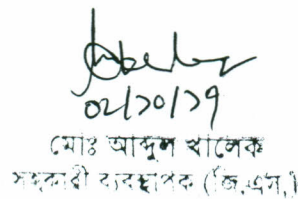 ০২/১০/১৭
মোঃ আব্দুল খালেক
সহকারী ব্যবস্থাপক (জি,এস,)